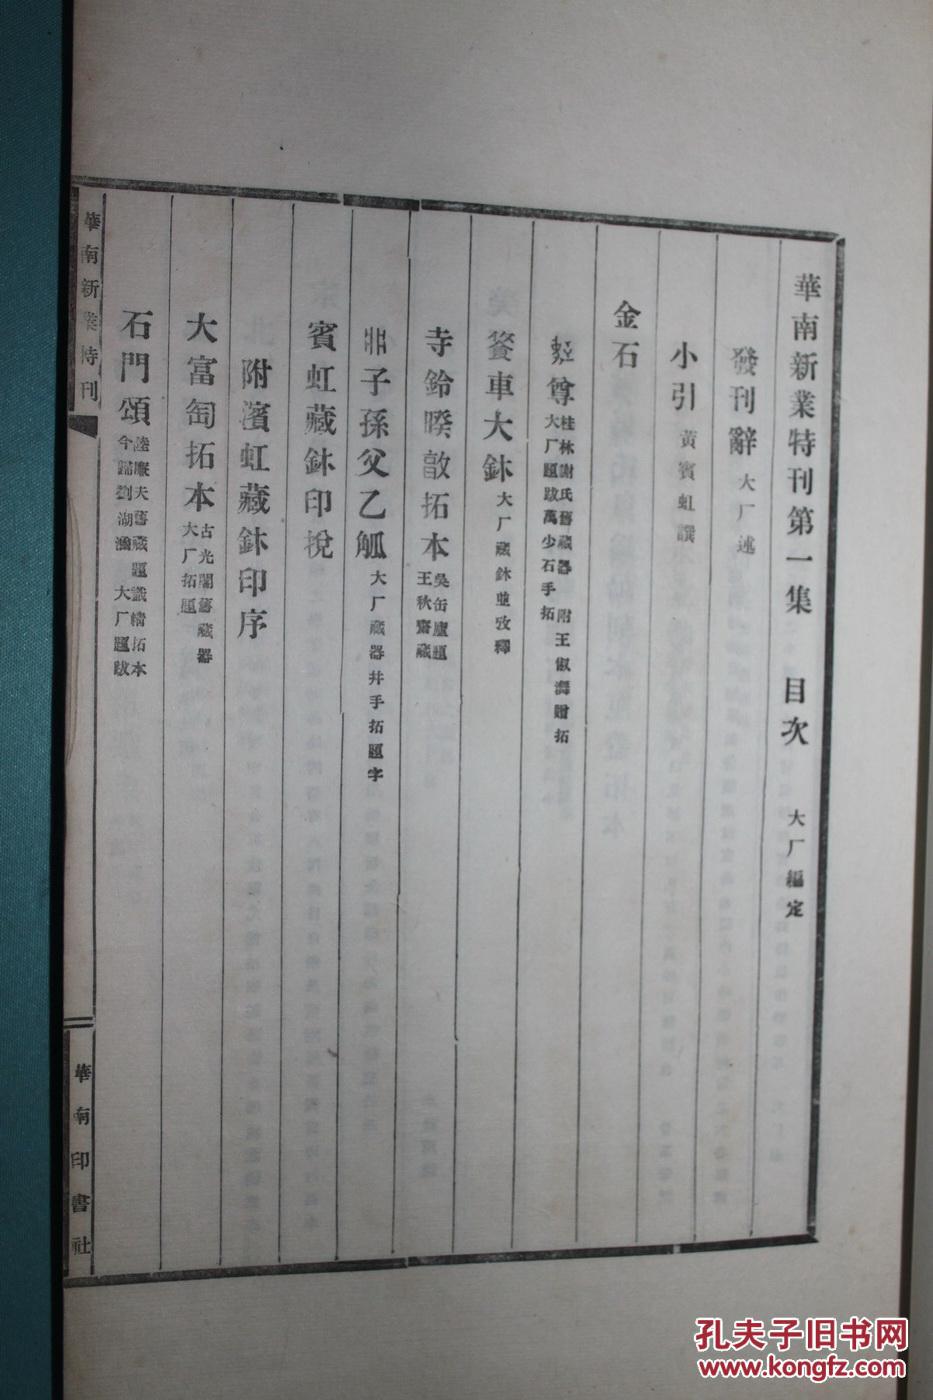 華南新業特刊第一集 目次 大厂編定
發刊辭 大厂述
小引 黃賓虹譔
金石
尊 桂林謝氏舊藏器 附王俶澗贈拓
大厂題跋萬少石手拓
餈車大鉥 大厂藏鉥並攷釋
寺鈴睽敦拓本 吳缶廬題
王秋齋藏
子孫父乙觚 大厂藏器幷手拓題字
賓虹藏鉥印挩
附濱虹藏鉥印序
大富匋拓本 古光閣舊藏器
大厂拓題
石門頌 陸廉夫舊藏題識精拓本
今歸劉湖涵 大厂題跋
華南新業特刊
華南印書社
孔夫子旧书网
www.kongfz.com